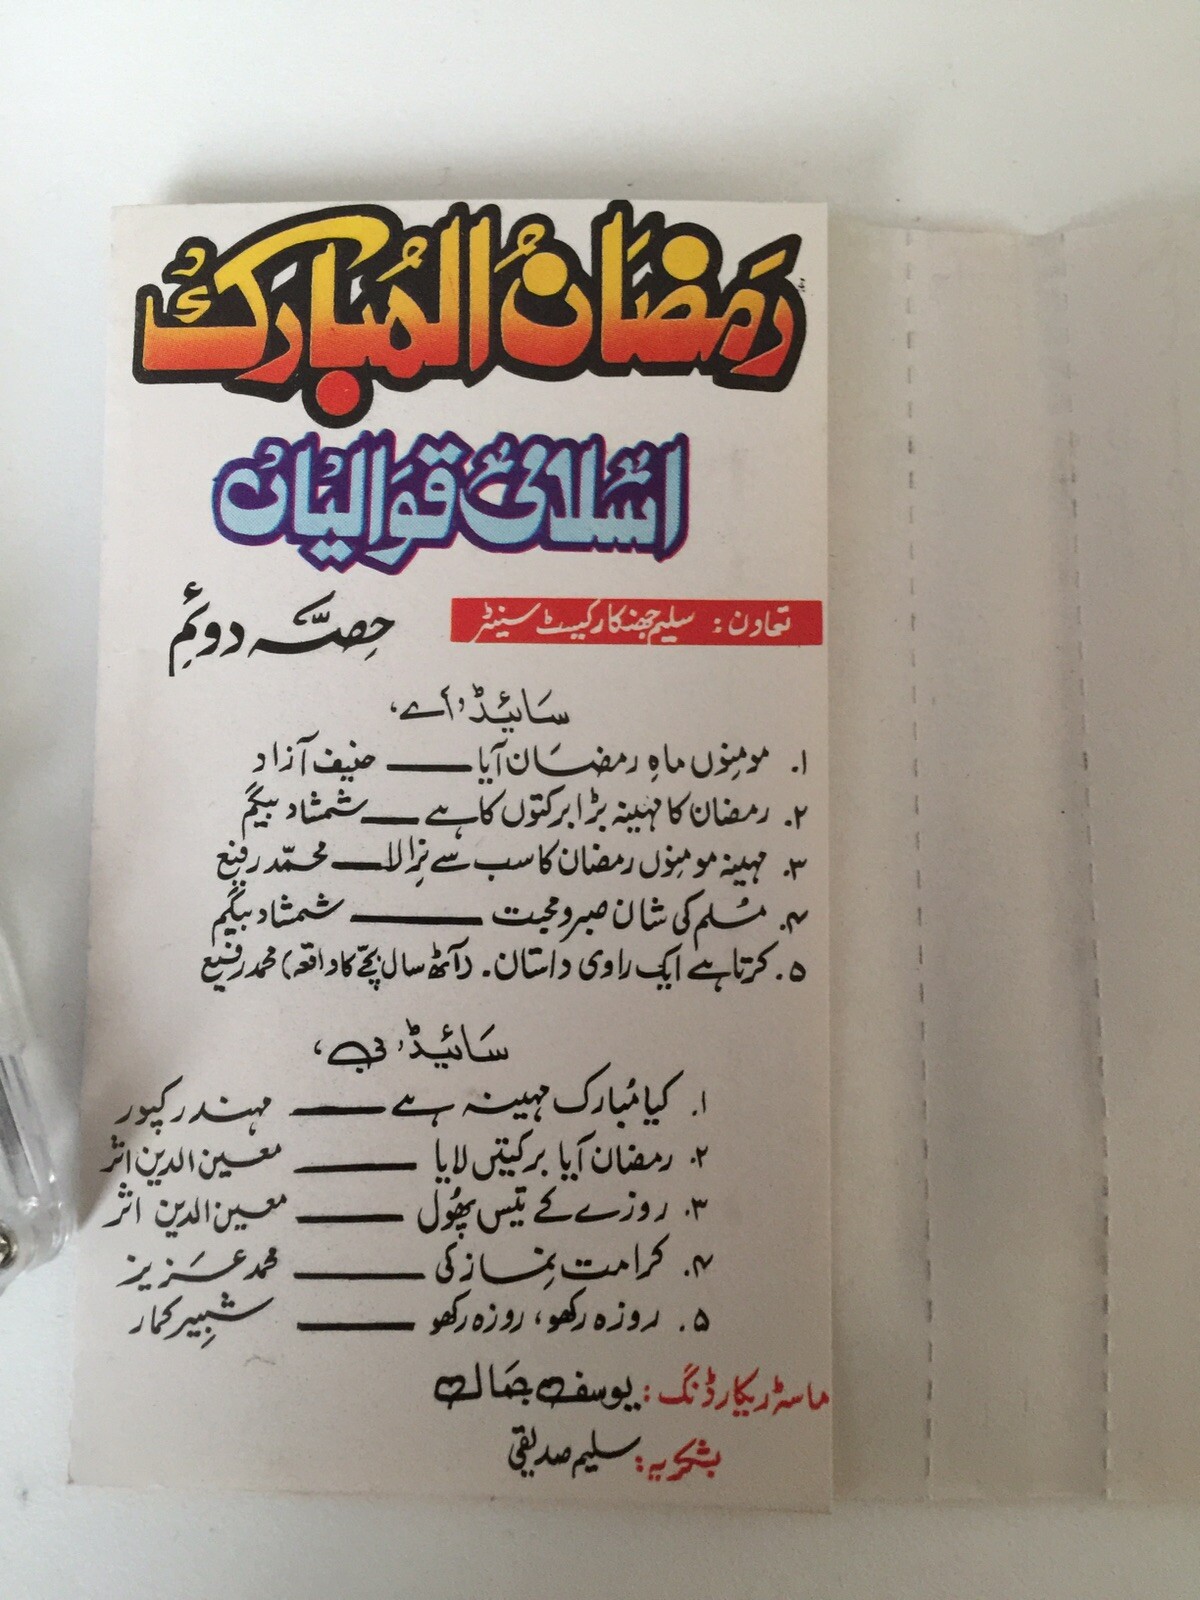 رمضانُ المُبارکُ
اسلامی قوالیاں
تعاون: سلیم جھنکار کیسٹ سینٹر
حِصّہ دوئم
سائیڈ 'اے'
۱. مومنوں ماہِ رمضان آیا — حنیف آزاد
۲. رمضان کا مہینہ بڑا برکتوں کا ہے — شمشاد بیگم
۳. مہینہ مومنوں رمضان کا سب سے نِرالا — محمّد رفیع
۴. مُسلم کی شان صبر و محبت — شمشاد بیگم
۵. کرتا ہے ایک راوی داستان۔ (آٹھ سال بچّے کا واقعہ) محمد رفیع
سائیڈ 'بی'
۱. کیا مُبارک مہینہ ہے — مہندر کپور
۲. رمضان آیا برکتیں لایا — معین الدین اثر
۳. روزے کے تیس پھُول — معین الدین اثر
۴. کرامت نِماز کی — محمد عزیز
۵. روزہ رکھو، روزہ رکھو — شبِیر کمار
ماسٹر ریکارڈنگ: یوسف جمال
بشکریہ: سلیم صدیقی